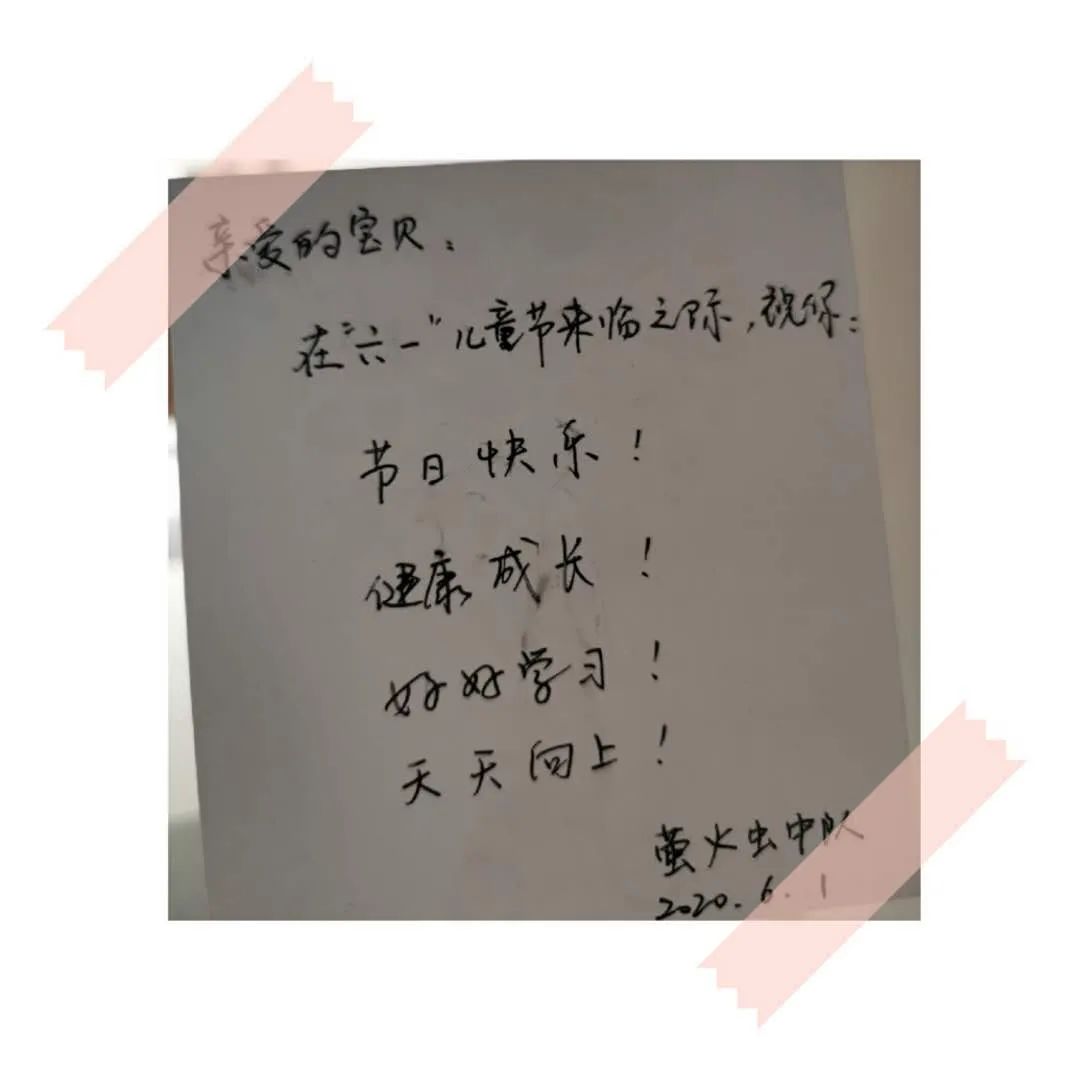 亲爱的宝贝：
在“六一”儿童节来临之际,祝你：
节日快乐！
健康成长！
好好学习！
天天向上！
萤火虫中队
2020.6.1